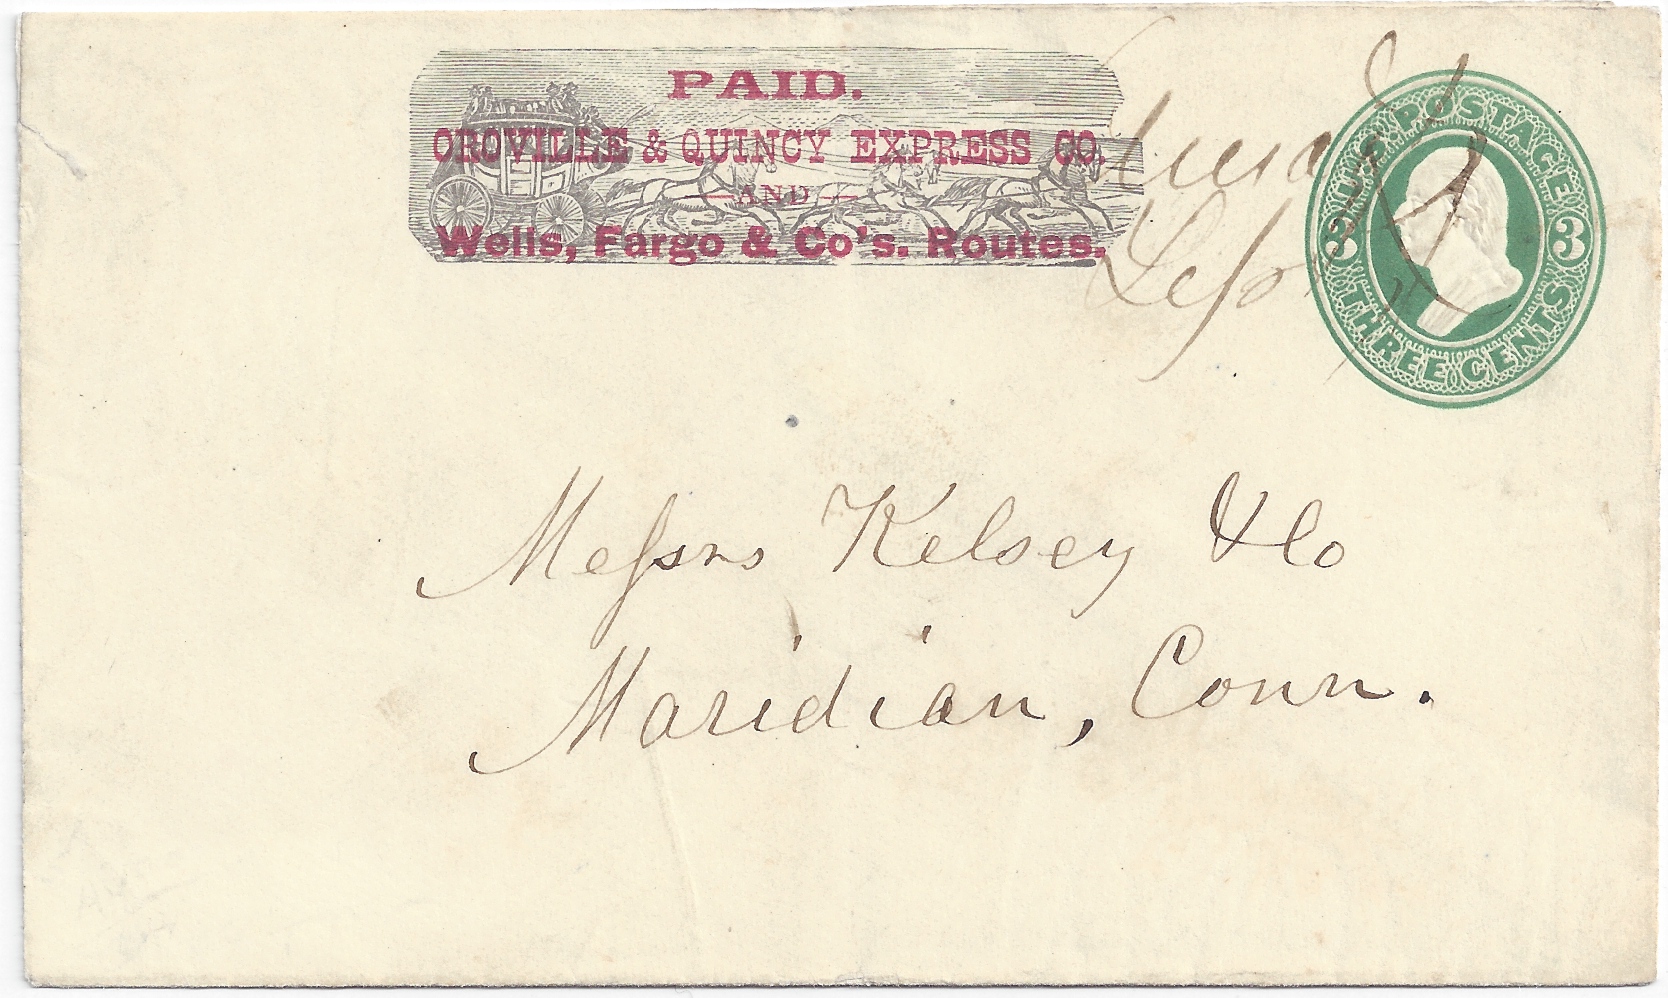 PAID.
OROVILLE & QUINCY EXPRESS CO.
AND
Wells, Fargo & Co's. Routes.
U.S. POSTAGE
3 3
THREE CENTS
Messrs Kelsey & Co
Maridian, Conn.